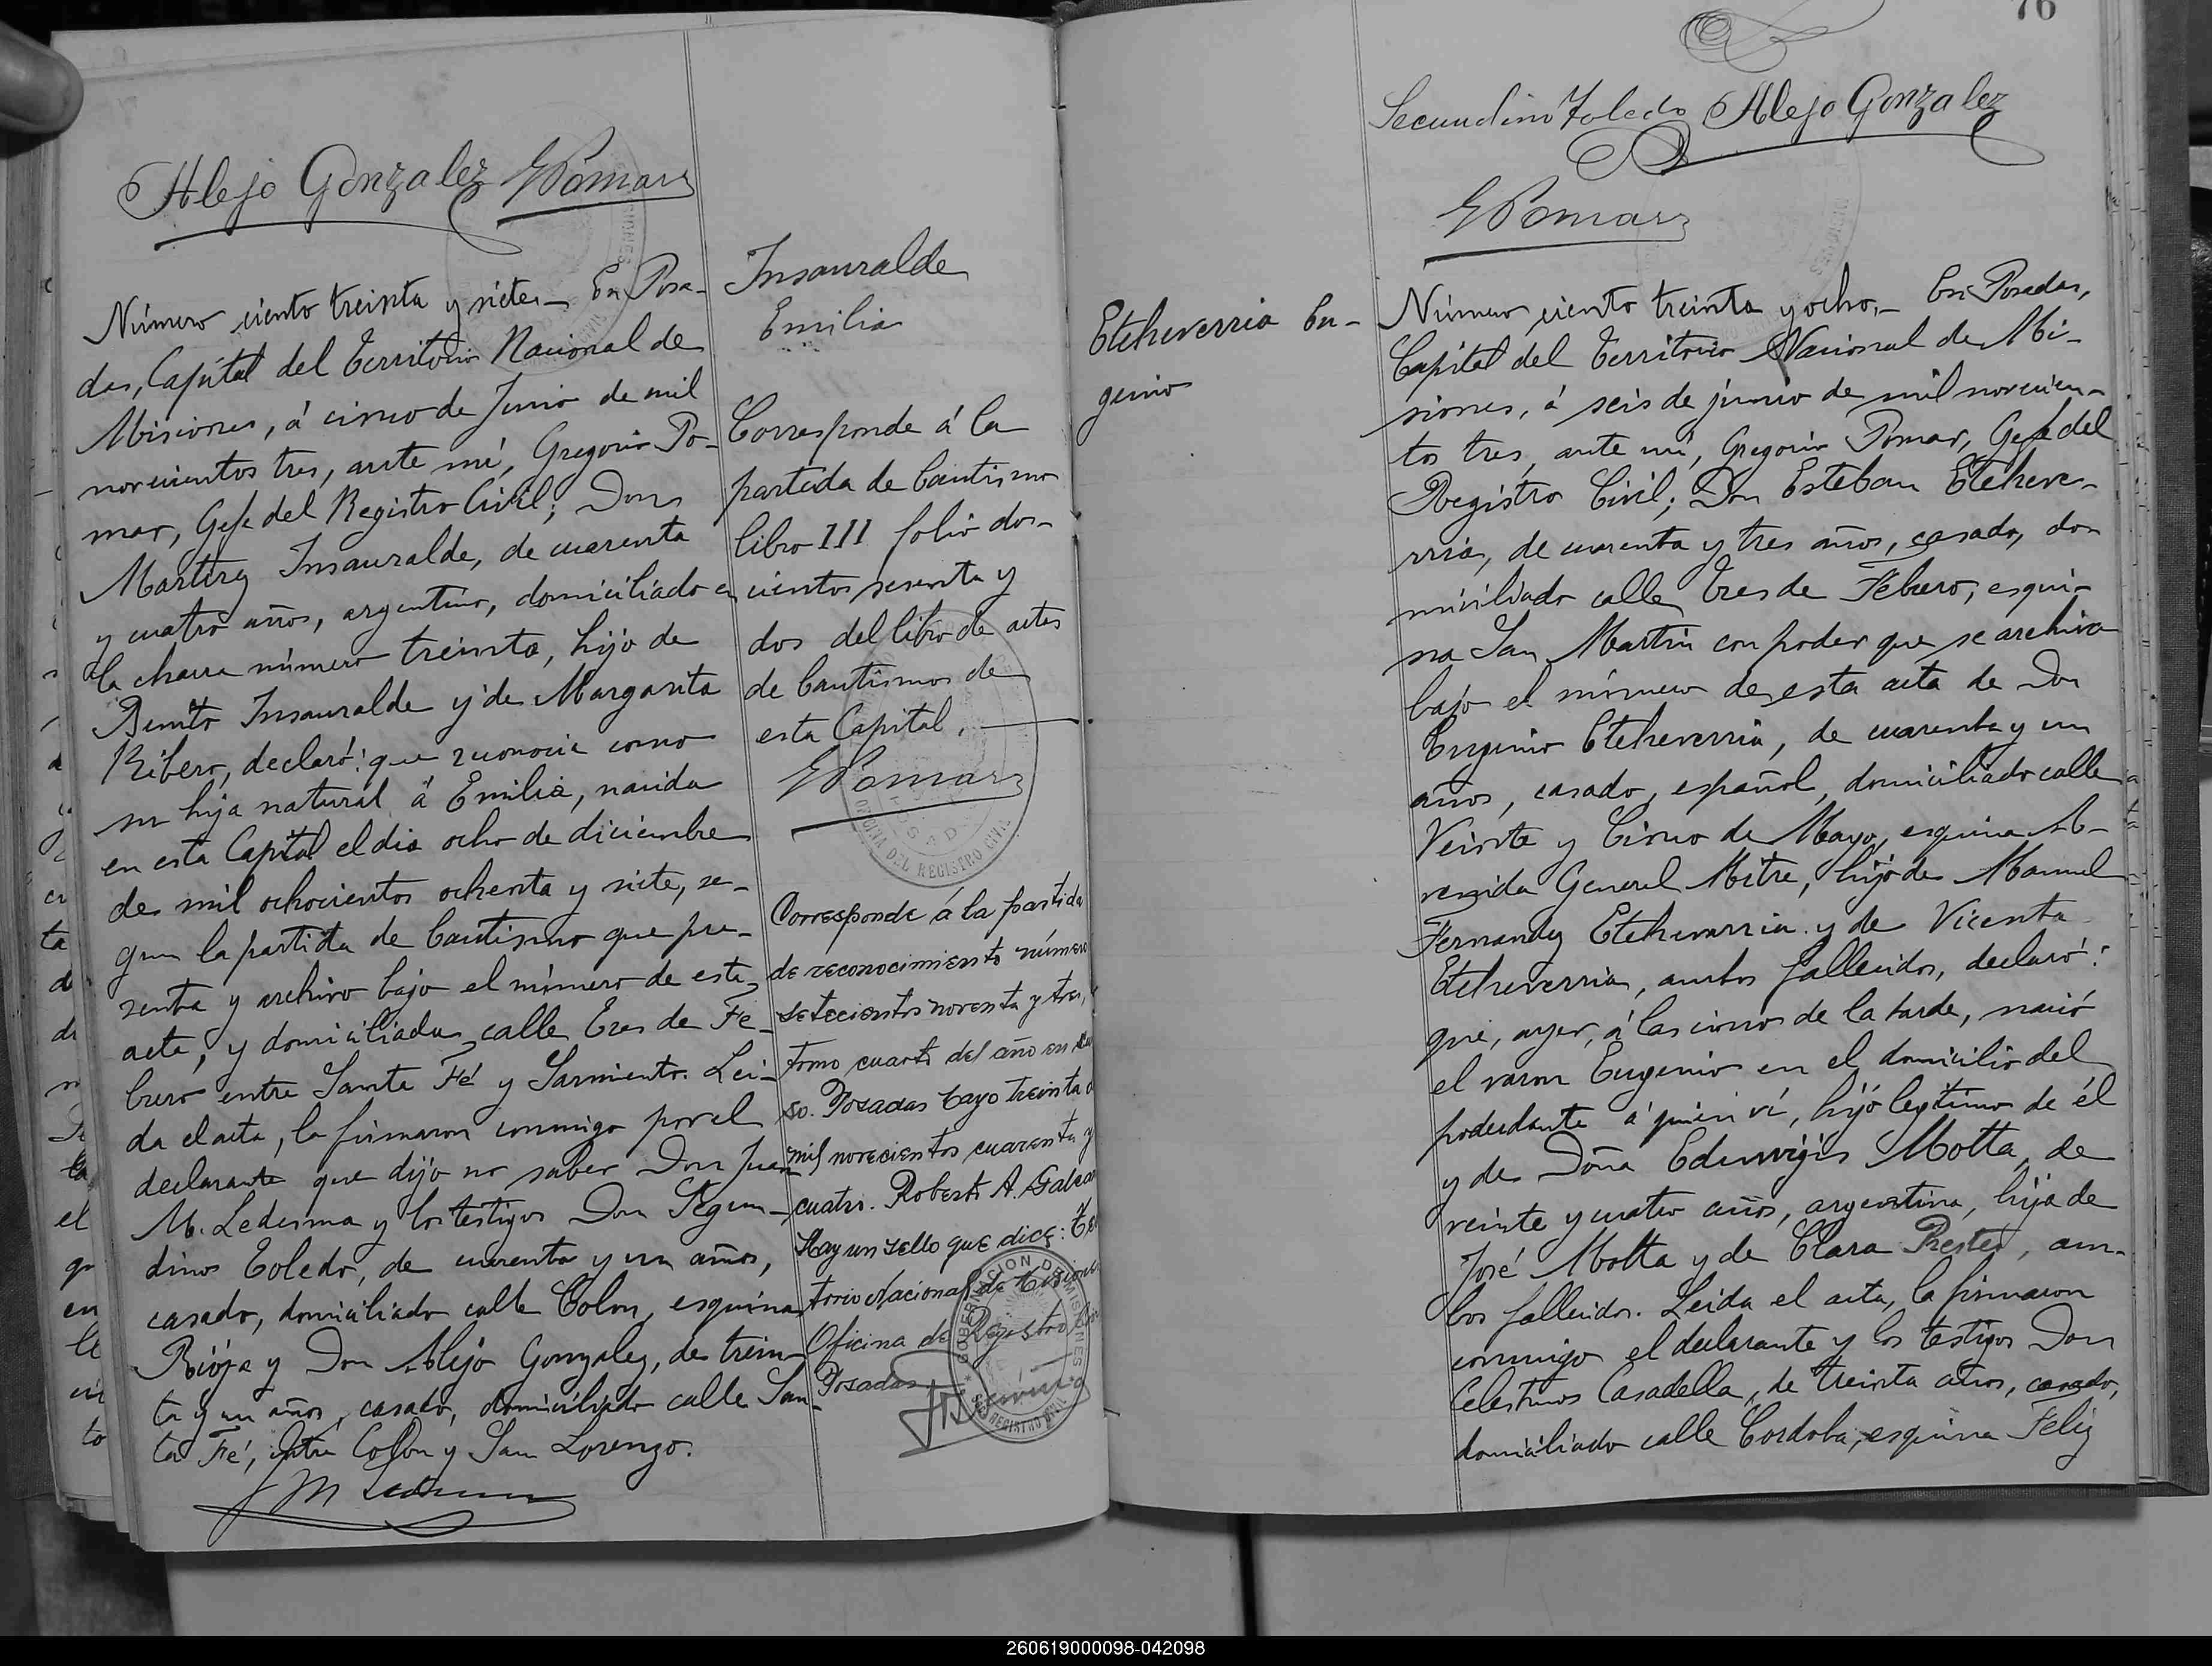 Alejo Gonzalez GPomar
Número ciento treinta y siete.— En Posa-
das, Capital del Territorio Nacional de
Misiones, á cinco de Junio de mil
novecientos tres, ante mí, Gregorio Po-
mar, Gefe del Registro Civil; Don
Martirez Insauralde, de cuarenta
y cuatro años, argentino, domiciliado en
la chacra número treinta, hijo de
Benito Insauralde y de Margarita
Ribero, declaró: que reconocia como
su hija natural á Emilia, nacida
en esta Capital el dia ocho de diciembre
de mil ochocientos ochenta y siete, se-
gun la partida de bautismo que pre-
senta y archivo bajo el número de esta
acta, y domiciliada calle Tres de Fe-
brero entre Santa Fé y Sarmiento. Lei-
da el acta, la firmaron conmigo por el
declarante que dijo no saber Don Juan
M. Ledesma y los testigos Don Segun-
dino Toledo, de cuarenta y un años,
casado, domiciliado calle Colon, esquina
Rioja y Don Alejo Gonzalez, de trein-
ta y un años, casado, domiciliado calle San-
ta Fé, entre Colon y San Lorenzo.
JM Ledesma
Insauralde
Emilia
Corresponde á la
partida de bautismo
libro III folio dos-
cientos sesenta y
dos del libro de actas
de bautismos de
esta Capital.
GPomar
OFICINA DEL REGISTRO CIVIL
Corresponde á la partida
de reconocimiento número
setecientos noventa y tres,
tomo cuarto del año en
so. Posadas Mayo treinta
mil novecientos cuarenta y
cuatro. Roberto A. Galea
Hay un sello que dice:
torio Nacional de Misiones
Oficina de Registro
Posadas
GOBERNACION DE MISIONES
REGISTRO CIVIL
76
Secundino Toledo Alejo Gonzalez
GPomar
Etcheverria Eu-
genio
Número ciento treinta y ocho.— En Posadas,
Capital del Territorio Nacional de Mi-
siones, á seis de junio de mil novecien-
tos tres, ante mí, Gregorio Pomar, Gefe del
Registro Civil; Don Esteban Etcheve-
rria, de cuarenta y tres años, casado, do-
miciliado calle Tres de Febrero, esqui-
na San Martin con poder que se archiva
bajo el número de esta acta de Don
Eugenio Etcheverria, de cuarenta y un
años, casado, español, domiciliado calle
Veinte y Cinco de Mayo, esquina A-
venida General Mitre, hijo de Manuel
Fernandez Etcheverria y de Vicenta
Etcheverria, ambos fallecidos, declaró:
que, ayer, á las cinco de la tarde, nació
el varon Eugenio en el domicilio del
poderdante á quien ví, hijo legítimo de él
y de Doña Eduvigis Motta, de
veinte y cuatro años, argentina, hija de
José Motta y de Clara Prestes, am-
bos fallecidos. Leida el acta, la firmaron
conmigo el declarante y los testigos Don
Celestino Casadella, de treinta años, casado,
domiciliado calle Cordoba, esquina Feliz
260619000098-042098